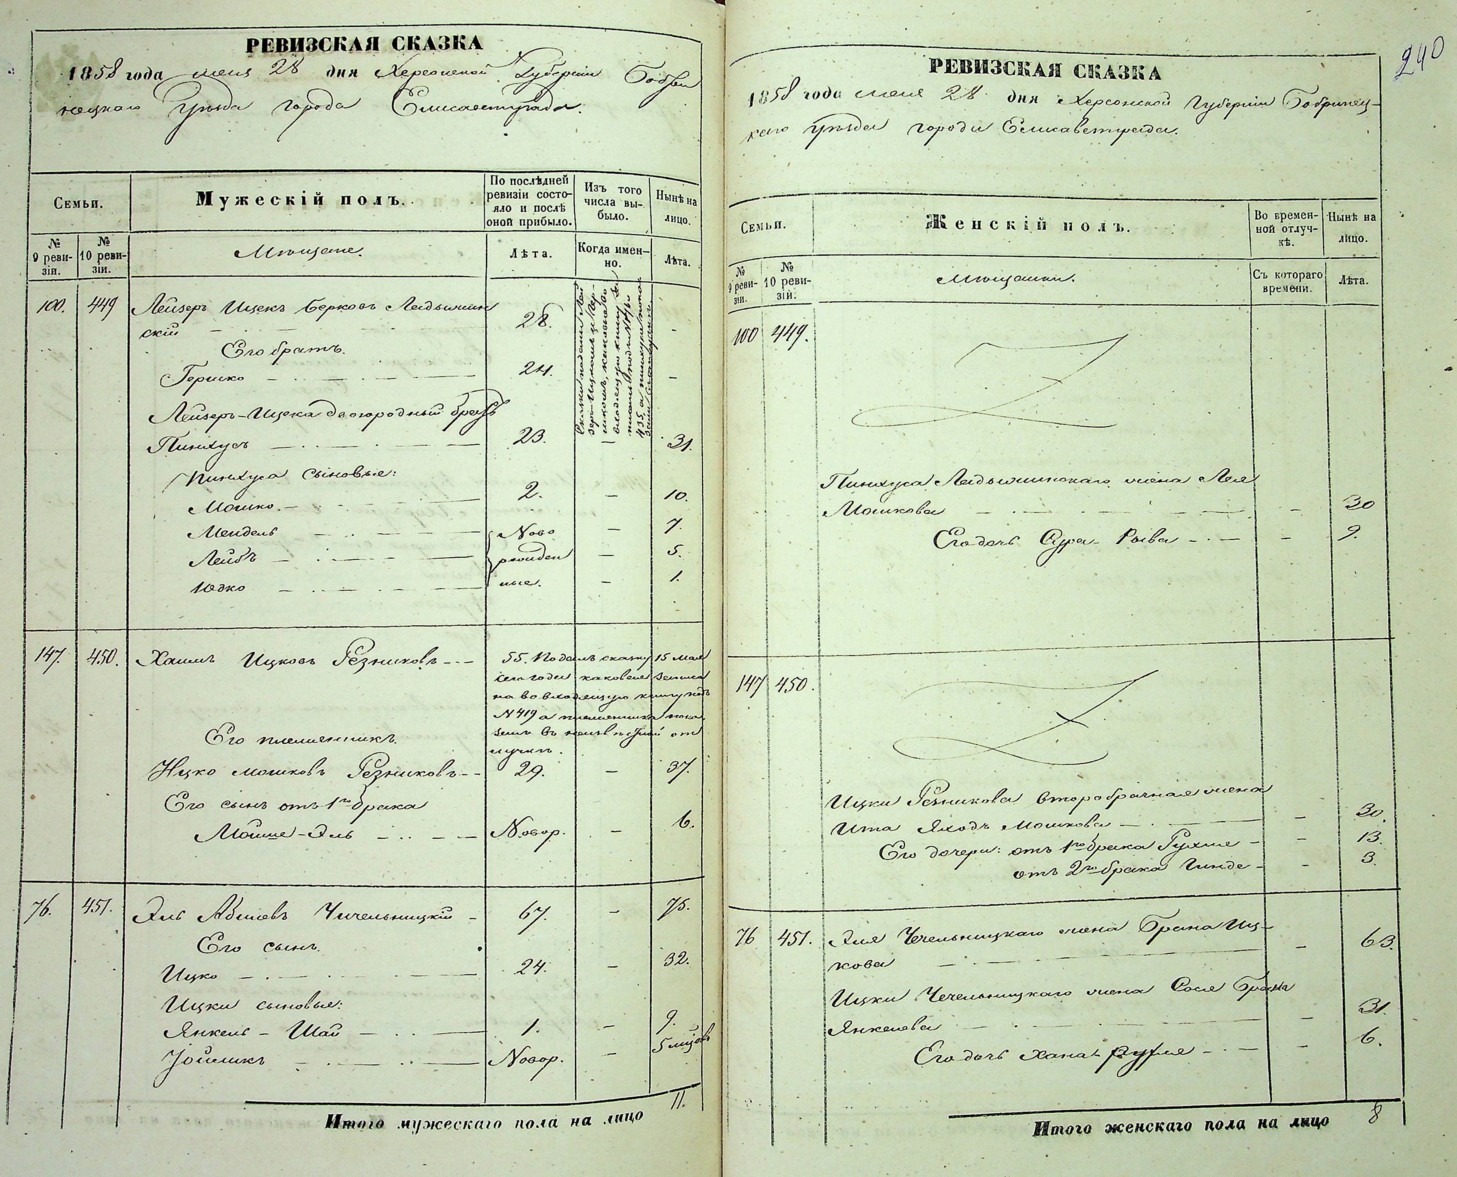 РЕВИЗСКАЯ СКАЗКА
1858 года мая 28 дня Херсонской Губернии Бобри
нецкаго Уѣзда города Елисаветграда.
Семьи.
Мужескій полъ.
По послѣдней ревизіи состояло и послѣ оной прибыло.
Изъ того числа выбыло.
Нынѣ на лицо.
№ 9 ревизіи.
№ 10 ревизіи.
Мѣщане.
Лѣта.
Когда именно.
Лѣта.
100. 449 Лейзеръ Ицекъ Берковъ Ладыжин
скій 28. -
Его братъ.
Гершко 24. -
Лейзеръ-Ицека двоюродный братъ
Пинхусъ 23. - 31.
Пинхуса сыновья:
Мошко 2. - 10.
Мендель Ново - 7.
Лейбъ рожден - 5.
Юдко ные. - 1.
147. 450. Хаимъ Ицковъ Рѣзниковъ 55. Подалъ сказку 15 мая
сего года каковая записа
на во входящую книгу подъ
№ 419 а племянника пока
Его племянникъ.
Ицко Мошковъ Рѣзниковъ 29. - 37.
Его сынъ отъ 1го брака
Мойше-Эль Новор. - 6.
76. 451. Эль Абмевъ Чичельницкій 67. - 75.
Его сынъ.
Ицко 24. - 32.
Ицки сыновья:
Янкель-Шай 1. - 9.
Іойликъ Новор. - 5 мѣсяцъ
11.
Итого мужескаго пола на лицо
240
РЕВИЗСКАЯ СКАЗКА
1858 года мая 28 дня Херсонской Губерніи Бобринец-
каго Уѣзда города Елисаветграда.
Семьи.
Женскій полъ.
Во временной отлучкѣ.
Нынѣ на лицо.
№ 9 ревизіи.
№ 10 ревизіи.
Мѣщанки.
Съ котораго времени.
Лѣта.
100 449.
Пинхуса Ладыжинскаго жена Лея
Мошкова - 30
Его дочь Сура-Рыва - 9.
147 450.
Ицки Рѣзникова второбрачная жена
Ита Яходъ Мошкова - 30.
Его дочери: отъ 1го брака Рухля - 13.
отъ 2го брака Гинде - 3.
76 451. Эля Чечельницкаго жена Брана Иц-
кова - 63.
Ицки Чечельницкаго жена Сося Брана
Янкелева - 31.
Его дочь Хана Рухля - 6.
8
Итого женскаго пола на лицо